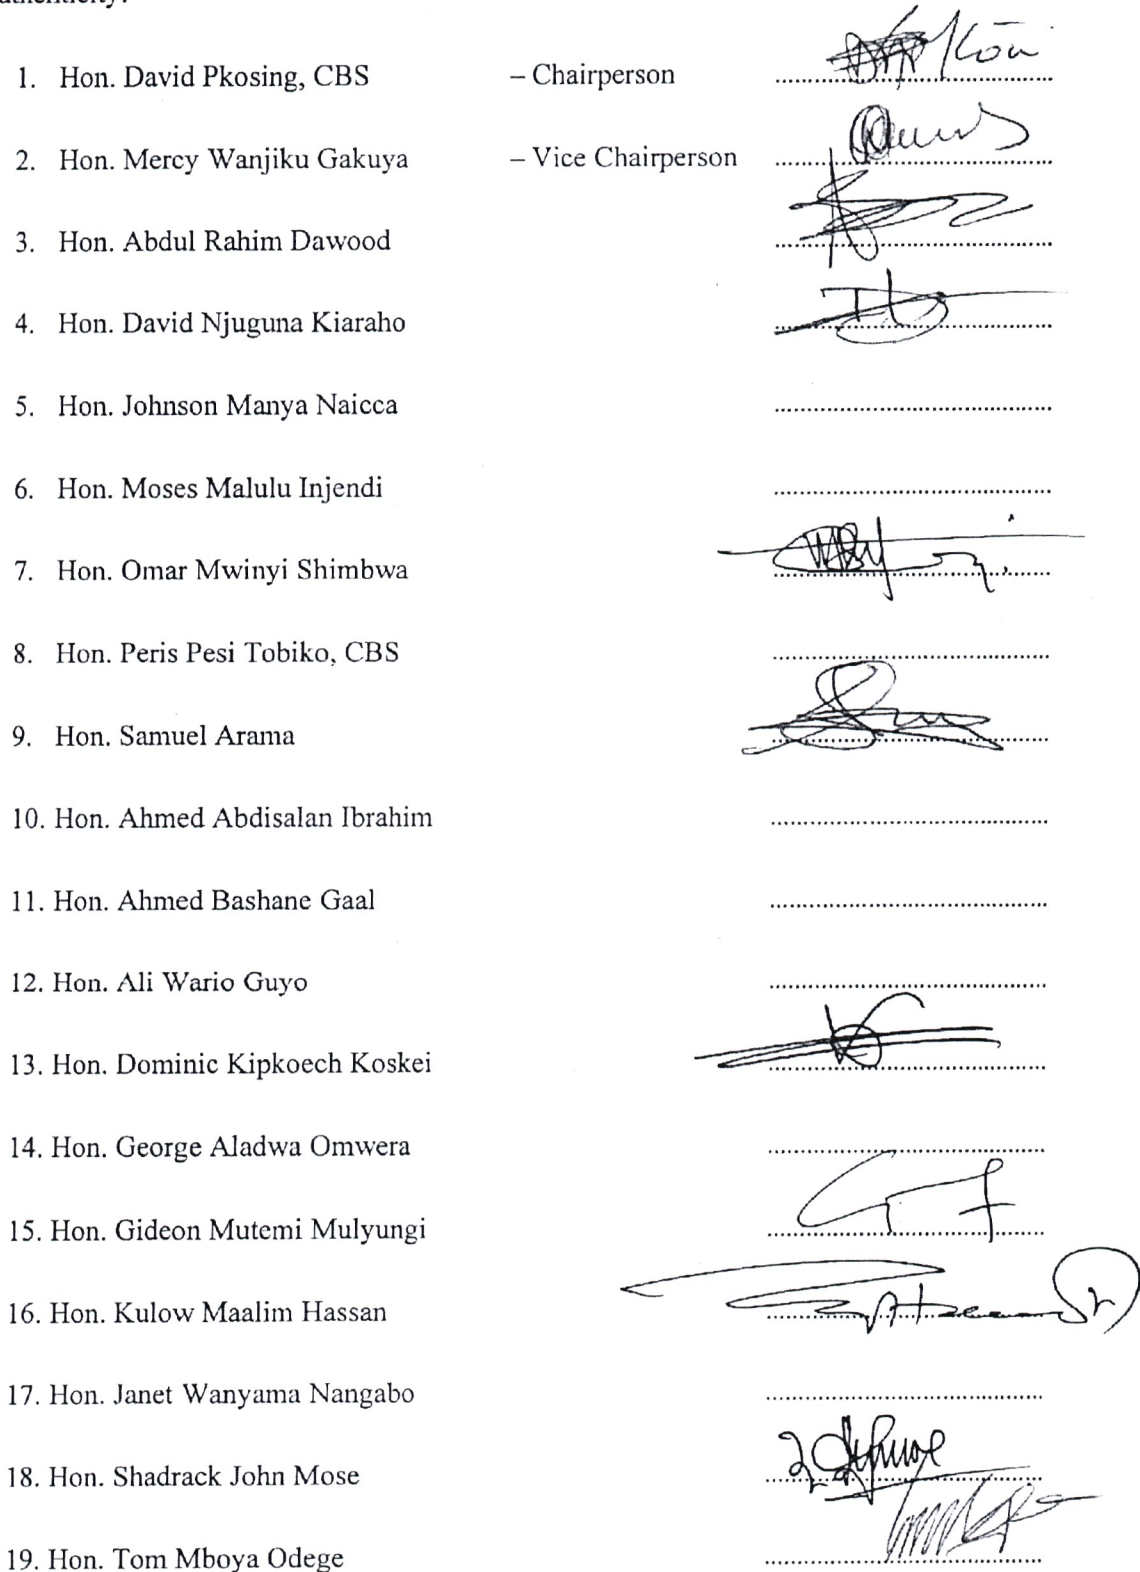 1. Hon. David Pkosing, CBS – Chairperson ........................................
2. Hon. Mercy Wanjiku Gakuya – Vice Chairperson ........................................
3. Hon. Abdul Rahim Dawood ........................................
4. Hon. David Njuguna Kiaraho ........................................
5. Hon. Johnson Manya Naicca ........................................
6. Hon. Moses Malulu Injendi ........................................
7. Hon. Omar Mwinyi Shimbwa ........................................
8. Hon. Peris Pesi Tobiko, CBS ........................................
9. Hon. Samuel Arama ........................................
10. Hon. Ahmed Abdisalan Ibrahim ........................................
11. Hon. Ahmed Bashane Gaal ........................................
12. Hon. Ali Wario Guyo ........................................
13. Hon. Dominic Kipkoech Koskei ........................................
14. Hon. George Aladwa Omwera ........................................
15. Hon. Gideon Mutemi Mulyungi ........................................
16. Hon. Kulow Maalim Hassan ........................................
17. Hon. Janet Wanyama Nangabo ........................................
18. Hon. Shadrack John Mose ........................................
19. Hon. Tom Mboya Odege ........................................